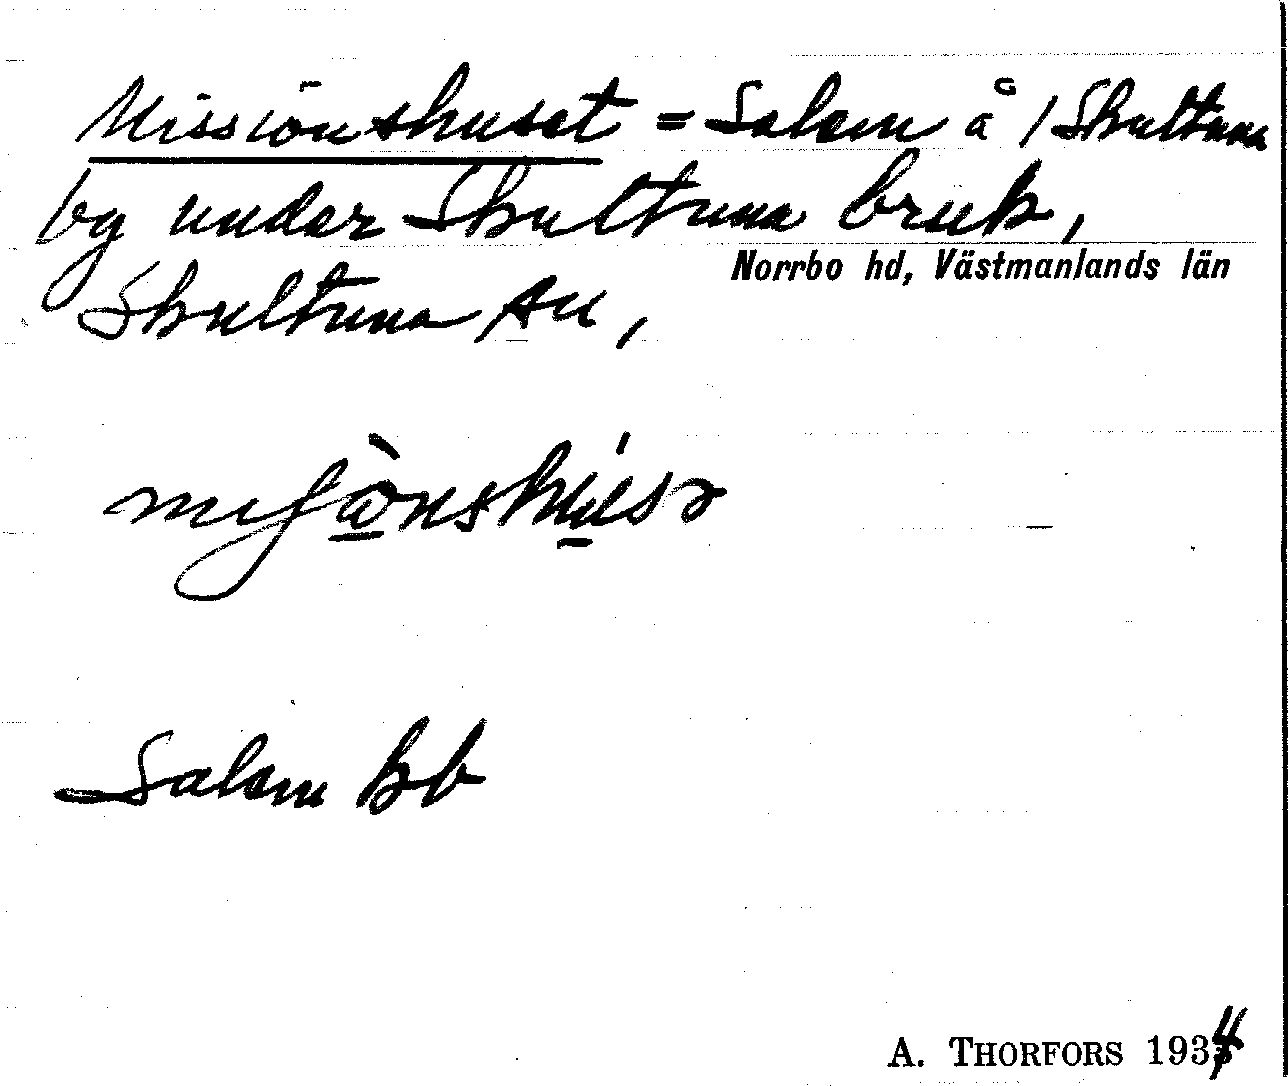 Missionshuset = Salem å / Skultuna
by under Skultuna bruk,
Norrbo hd, Västmanlands län
Skultuna sn,
Salem
A. THORFORS 1934